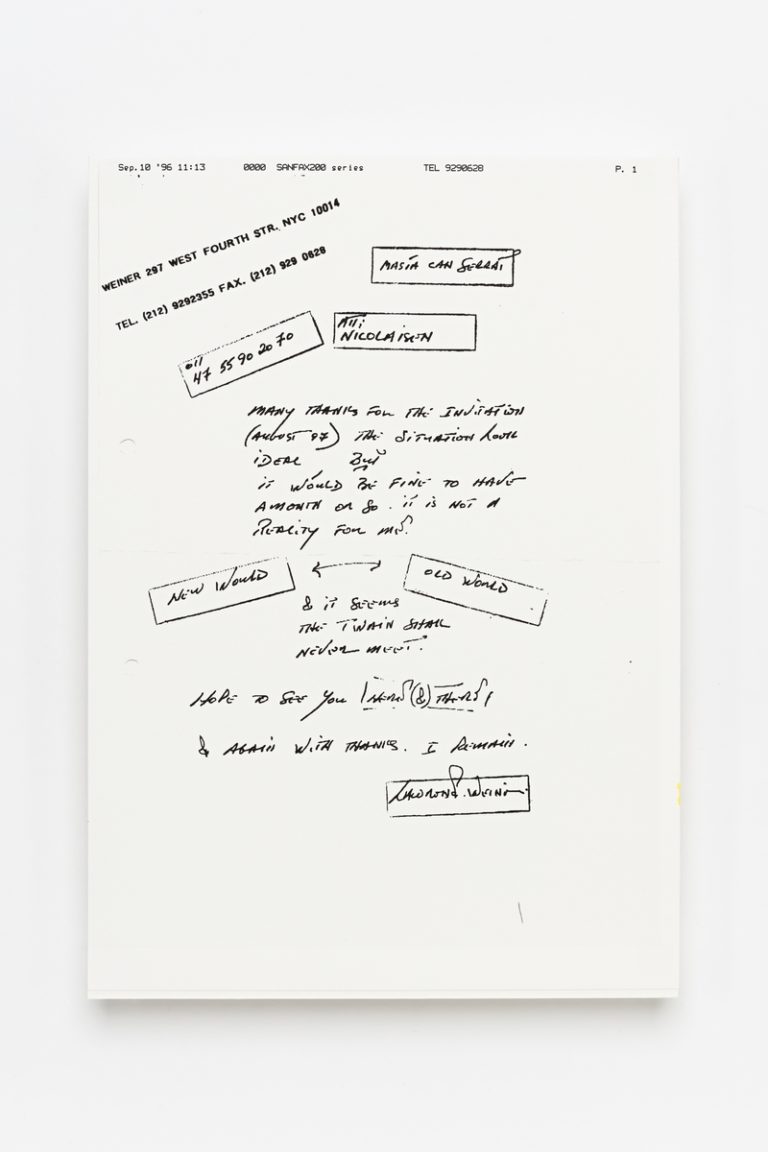 Sep.10 '96 11:13 0000 SANFAX200 series TEL 9290628 P. 1
WEINER 297 WEST FOURTH STR. NYC 10014
TEL. (212) 9292355 FAX. (212) 929 0628
MASIA CAN SERRAT
ATT:
NICOLAISEN
011
47 55 90 20 70
MANY THANKS FOR THE INVITATION
(AUGUST 97) THE SITUATION LOOK
IDEAL BUT
IT WOULD BE FINE TO HAVE
A MONTH OR SO. IT IS NOT A
REALITY FOR ME.
NEW WORLD ↔ OLD WORLD
& IT SEEMS
THE TWAIN SHALL
NEVER MEET.
HOPE TO SEE YOU HERE (&) THERE
& AGAIN WITH THANKS. I REMAIN.
LAWRENCE WEINER